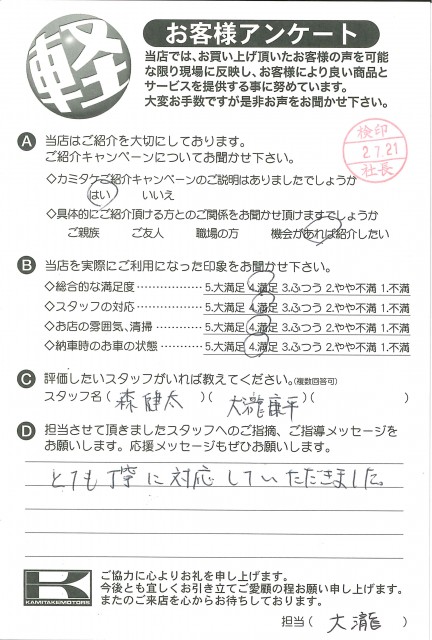 軽
お客様アンケート
当店では、お買い上げ頂いたお客様の声を可能
な限り現場に反映し、お客様により良い商品と
サービスを提供する事に努めています。
大変お手数ですが是非お声をお聞かせ下さい。
検印
2.7.21
社長
A 当店はご紹介を大切にしております。
ご紹介キャンペーンについてお聞かせ下さい。
◇カミタケご紹介キャンペーンのご説明はありましたでしょうか
はい いいえ
◇具体的にご紹介頂ける方とのご関係をお聞かせ頂けますでしょうか
ご親族 ご友人 職場の方 機会があれば紹介したい
B 当店を実際にご利用になった印象をお聞かせ下さい。
◇総合的な満足度……………… 5.大満足 4.満足 3.ふつう 2.やや不満 1.不満
◇スタッフの対応……………… 5.大満足 4.満足 3.ふつう 2.やや不満 1.不満
◇お店の雰囲気、清掃………… 5.大満足 4.満足 3.ふつう 2.やや不満 1.不満
◇納車時のお車の状態………… 5.大満足 4.満足 3.ふつう 2.やや不満 1.不満
C 評価したいスタッフがいれば教えてください。(複数回答可)
スタッフ名( 森健太 )( 大瀧康平 )( )
D 担当させて頂きましたスタッフへのご指摘、ご指導メッセージを
お願いします。応援メッセージもぜひお願いします。
とても丁寧に対応していただきました。
K
KAMITAKEMOTORS
ご協力に心よりお礼を申し上げます。
今後とも宜しくお引き立てご愛顧の程お願い申し上げます。
またのご来店を心からお待ちしております。
担当( 大瀧 )